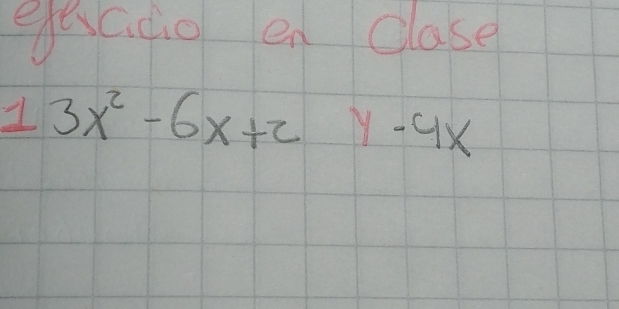 ejercicio en Clase
1 3x² - 6x + 2 y - 4x